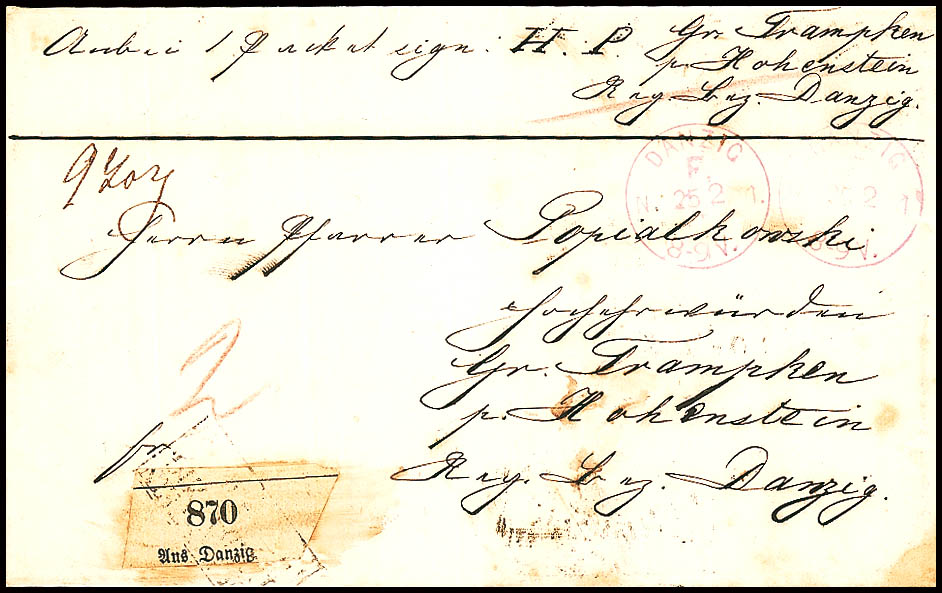 Anbei 1 Packet sign: H. P.
Gr. Trampken
p. Hohenstein
Reg. Bez. Danzig.
DANZIG
F.
N. 25 2 1.
8-9 V.
DANZIG
25 2 1
8-9 V.
Herrn Pfarrer Popialkowski
Hochehrwürden
Gr. Trampken
p. Hohenstein
Reg. Bez. Danzig.
2
fr.
870
Aus Danzig